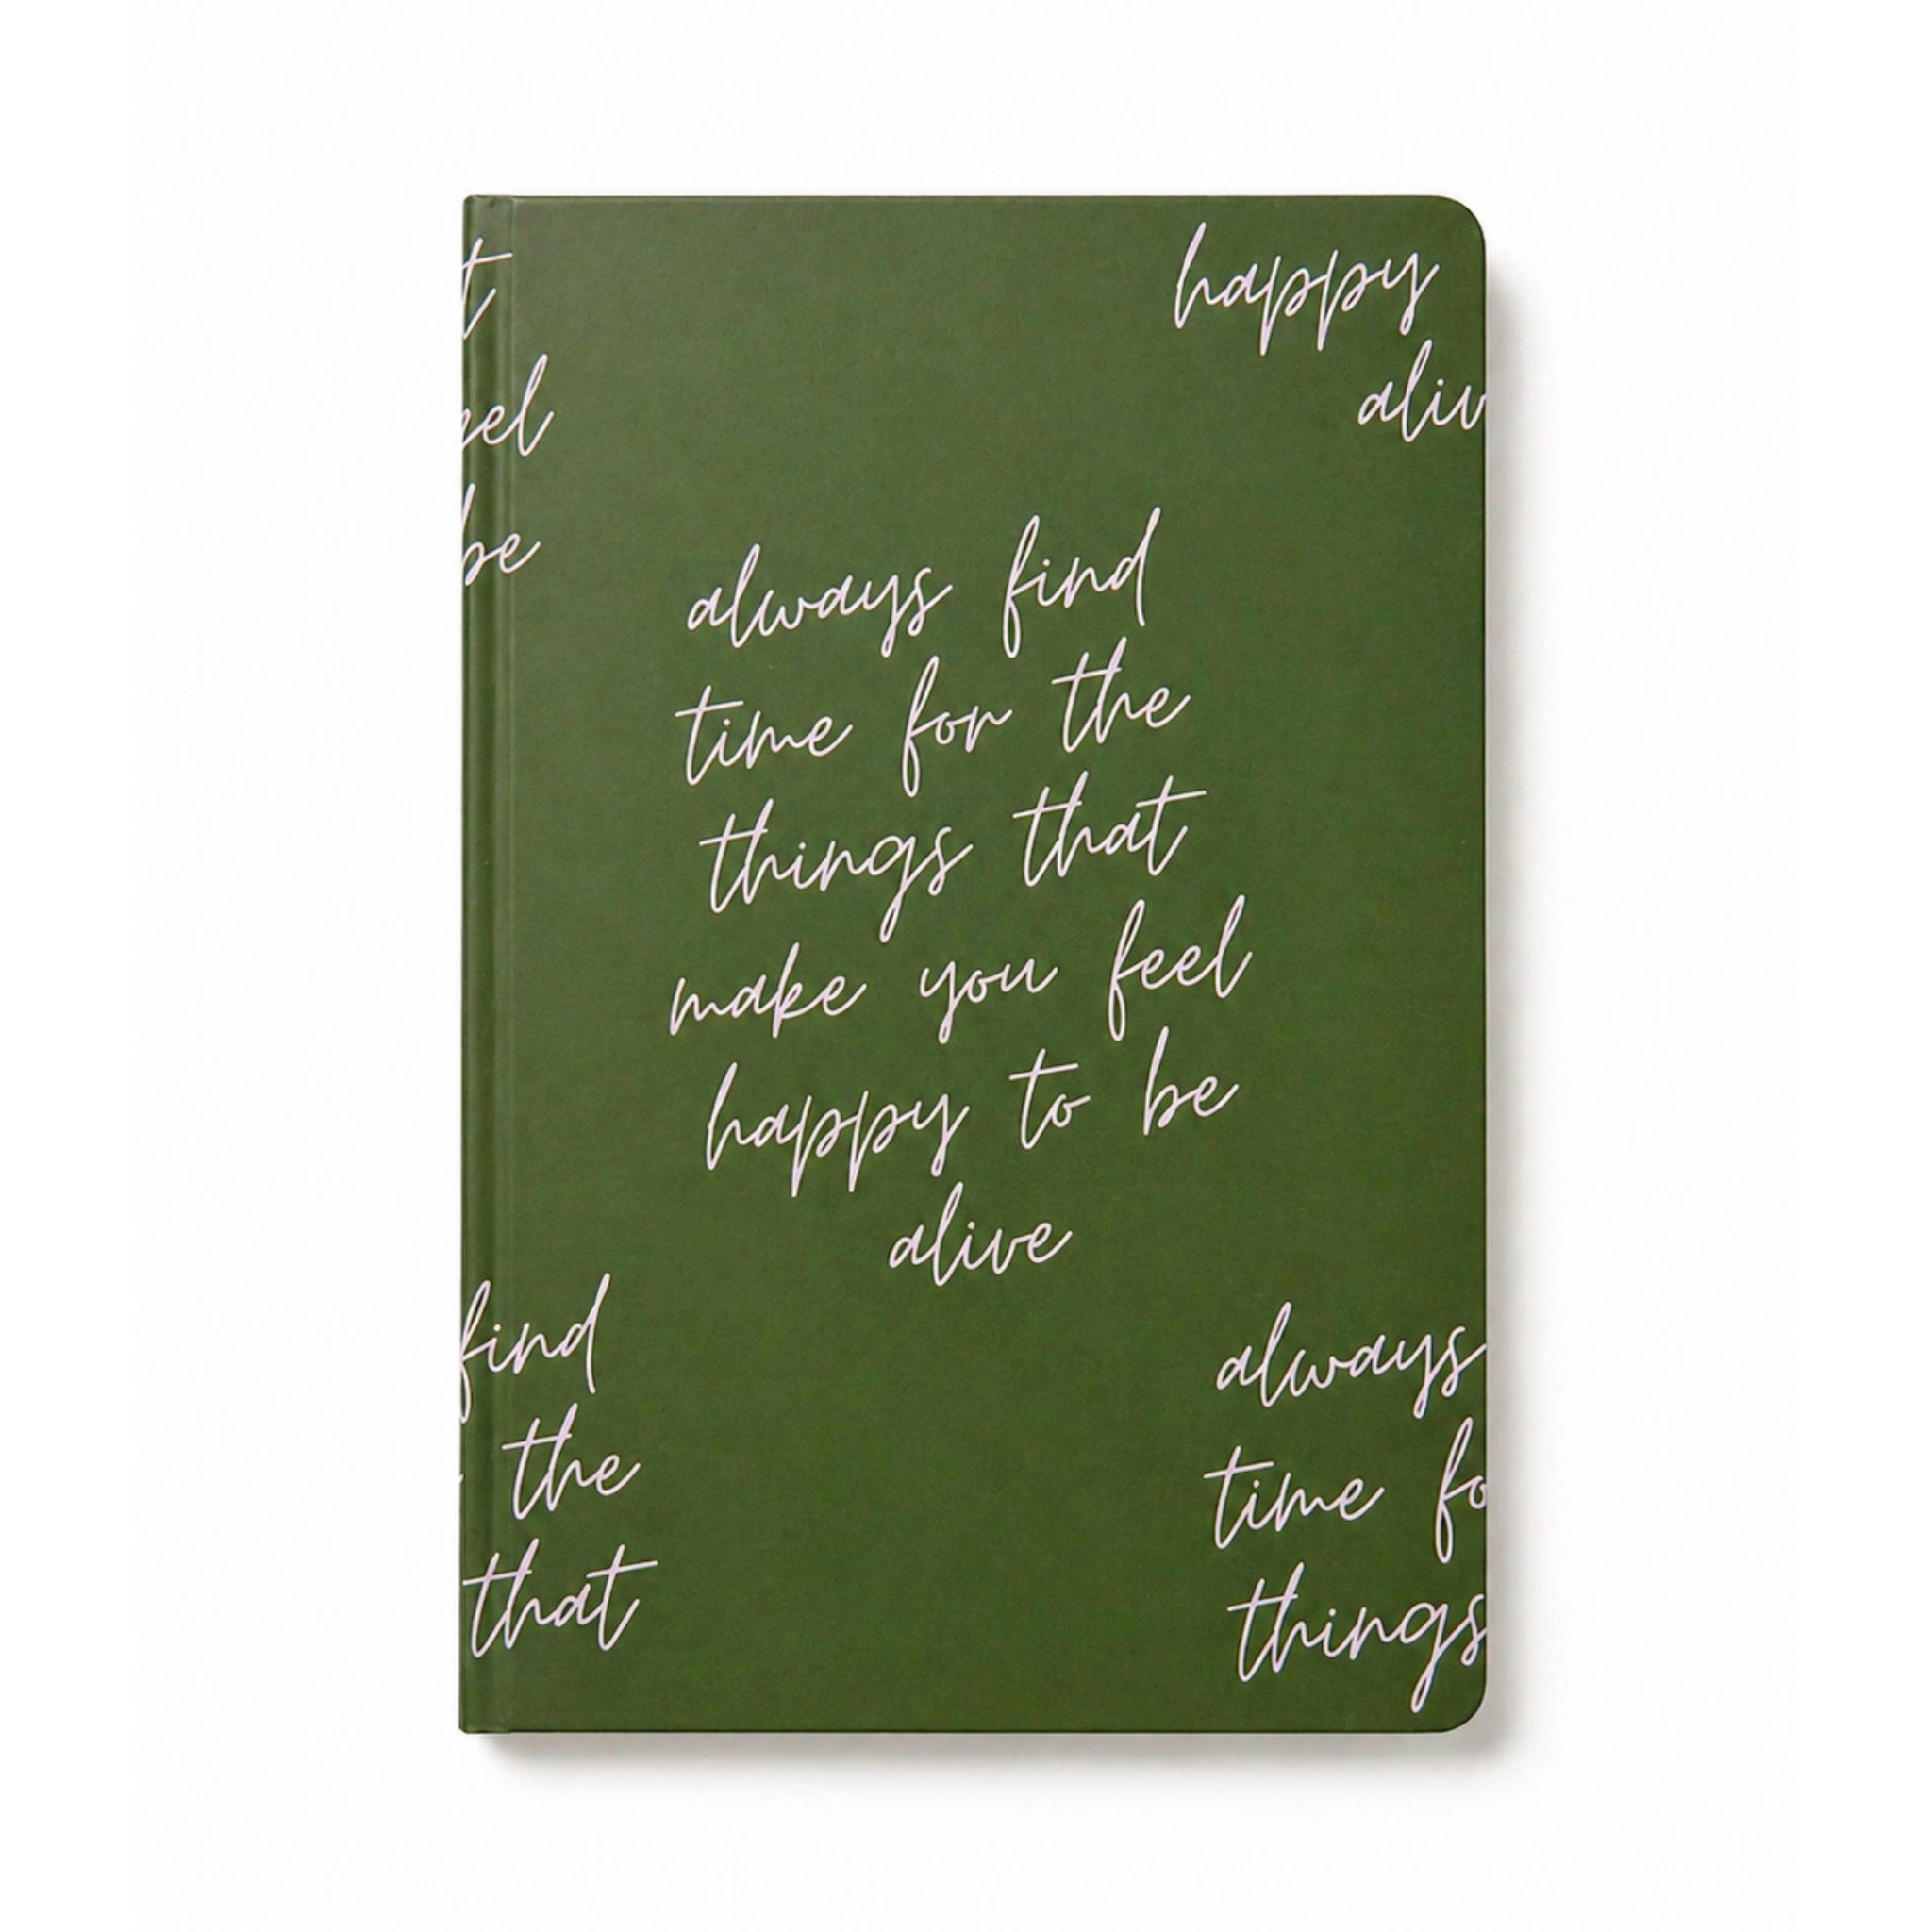 happy
aliv
t
eel
be
always find
time for the
things that
make you feel
happy to be
alive
find
the
that
always
time fo
things